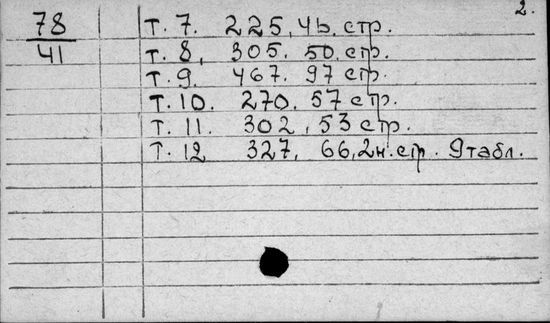 2.
78
41
т. 7. 225, 46. стр.
т. 8, 305. 50. стр.
т. 9. 467. 97 стр.
т. 10. 270. 57 стр.
т. 11. 302, 53 стр.
т. 12 327, 66, 2н. стр. 9 табл.